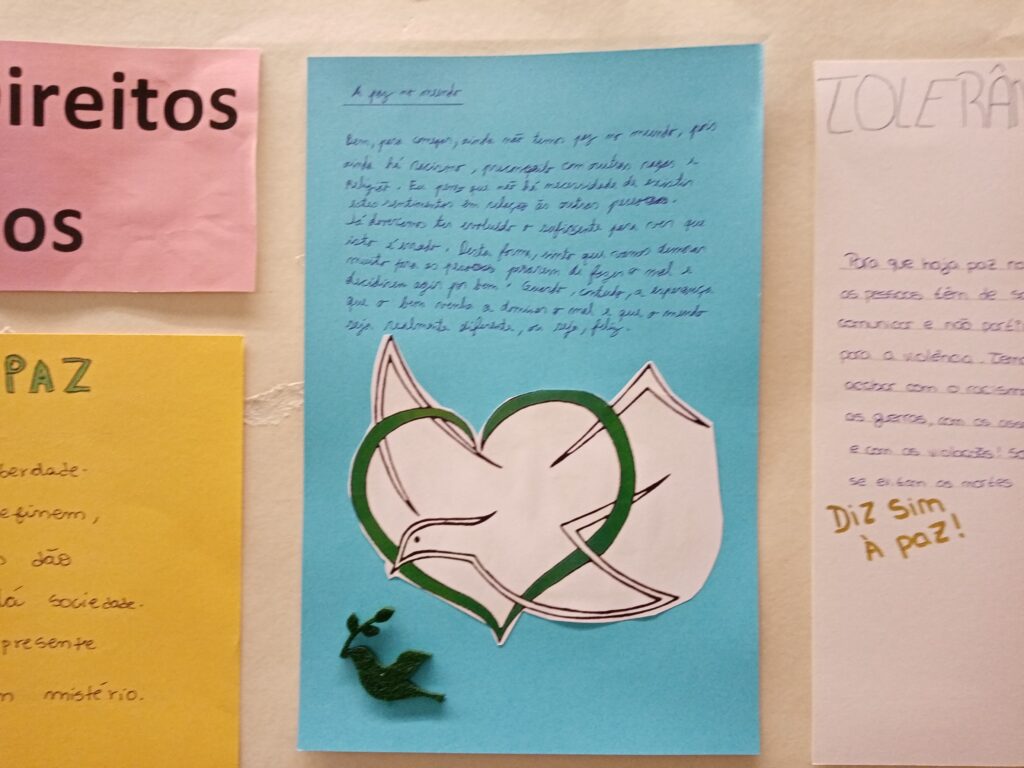 Direitos
os
PAZ
berdade.
efinem,
s dão
lá sociedade.
presente
m mistério.
A paz no mundo
Bem, para começar, ainda não temos paz no mundo, pois
ainda há racismo, preconceito com outras raças e
religião. Eu penso que não há necessidade de existir
estes sentimentos em relação às outras pessoas.
Já devermos ter evoluído o suficiente para ver que
isto é errado. Desta forma, sinto que vamos demorar
muito para as pessoas pararem de fazer o mal e
decidirem agir por bem. Guardo, contudo, a esperança
que o bem venha a dominar o mal e que o mundo
seja realmente diferente, ou seja, feliz.
TOLERÂN
Para que haja paz no
as pessoas têm de sa
comunicar e não parti
para a violência. Temo
acabar com o racismo
as guerras, com os ass
e com as violações! Só
se evitam as mortes
Diz sim
À paz!